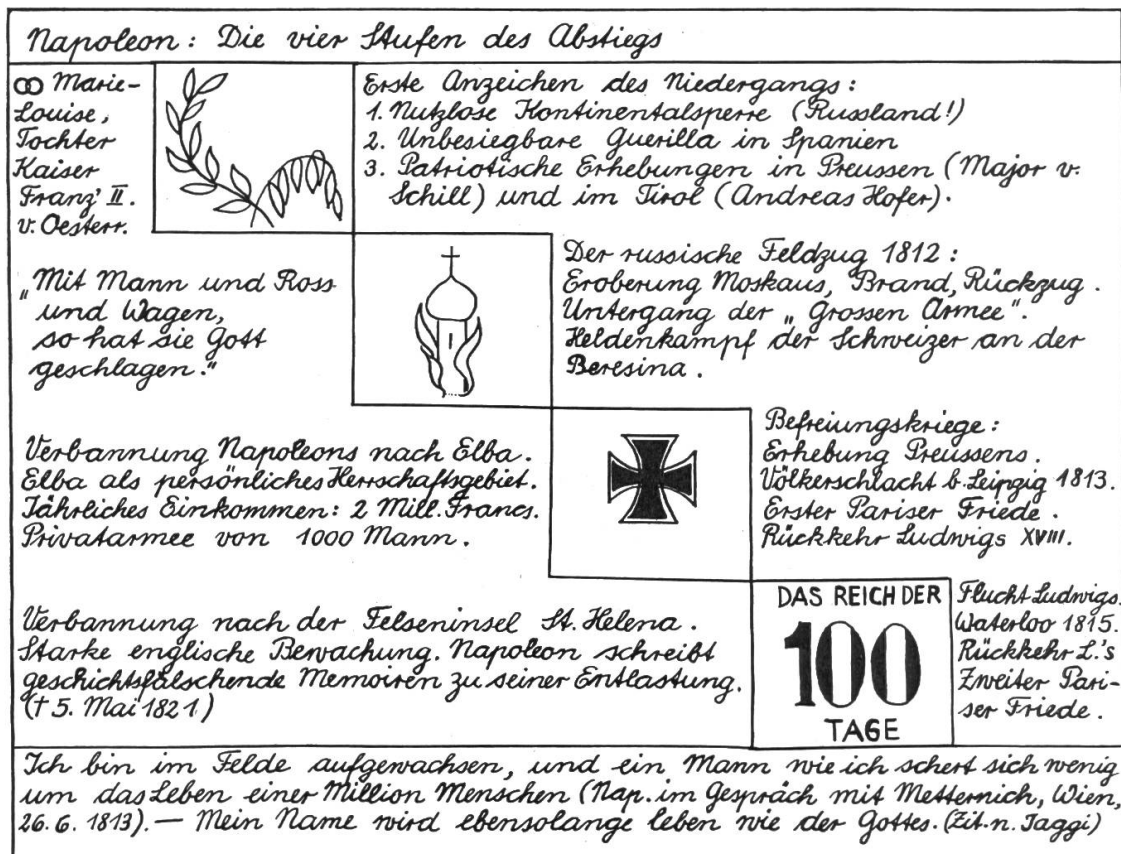 Napoleon: Die vier Stufen des Abstiegs
⚭ Marie-
Louise,
Tochter
Kaiser
Franz' II.
v. Oesterr.
Erste Anzeichen des Niedergangs:
1. Nutzlose Kontinentalsperre (Russland!)
2. Unbesiegbare Guerilla in Spanien
3. Patriotische Erhebungen in Preussen (Major v.
Schill) und im Tirol (Andreas Hofer).
„Mit Mann und Ross
und Wagen,
so hat sie Gott
geschlagen."
Der russische Feldzug 1812:
Eroberung Moskaus, Brand, Rückzug.
Untergang der „Grossen Armee".
Heldenkampf der Schweizer an der
Beresina.
Verbannung Napoleons nach Elba.
Elba als persönliches Herrschaftsgebiet.
Jährliches Einkommen: 2 Mill. Francs.
Privatarmee von 1000 Mann.
Befreiungskriege:
Erhebung Preussens.
Völkerschlacht b. Leipzig 1813.
Erster Pariser Friede.
Rückkehr Ludwigs XVIII.
Verbannung nach der Felseninsel St. Helena.
Starke englische Bewachung. Napoleon schreibt
geschichtsfälschende Memoiren zu seiner Entlastung.
(† 5. Mai 1821.)
DAS REICH DER
100
TAGE
Flucht Ludwigs.
Waterloo 1815.
Rückkehr L.'s
Zweiter Pari-
ser Friede.
Ich bin im Felde aufgewachsen, und ein Mann wie ich schert sich wenig
um das Leben einer Million Menschen (Nap. im Gespräch mit Metternich, Wien,
26. 6. 1813). — Mein Name wird ebensolange leben wie der Gottes. (Zit. n. Jaggi)